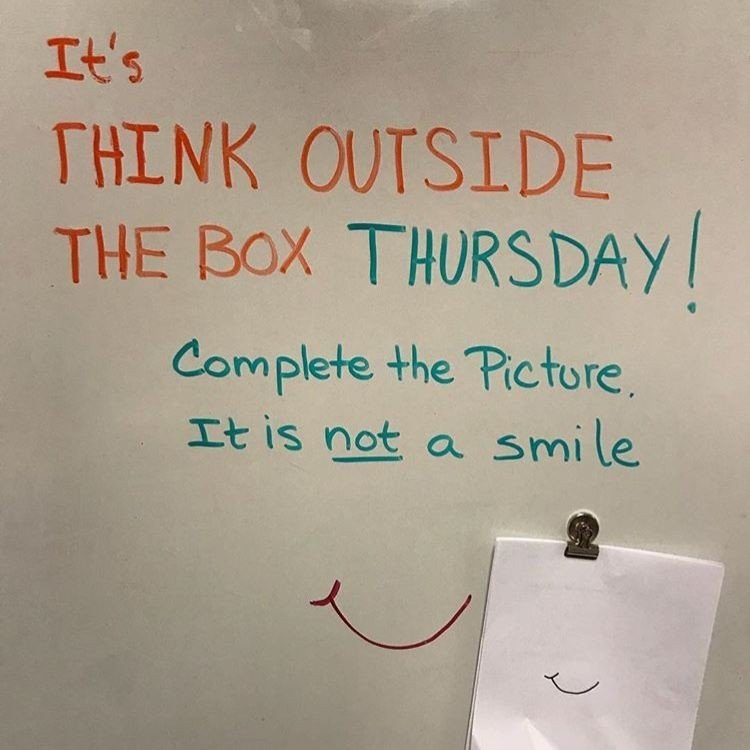 It's
THINK OUTSIDE
THE BOX THURSDAY!
Complete the Picture.
It is not a smile